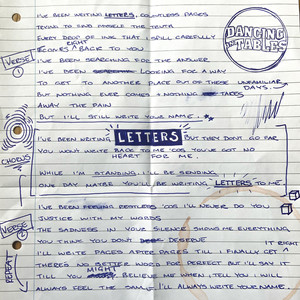 I've been writing LETTERS, countless pages
Trying to find myself the truth
Every drop of ink that I spill carefully
comes RIGHT back to you
DANCING ON TABLES
VERSE 1
I've been searching for the answer
I've been looking for a way
To get to another place out of these unfamiliar days.
But nothing ever comes & nothing takes
Away the pain
But I'll still write your name..
CHORUS
I've been writing LETTERS but they don't go far
You won't write back to me 'cos you've got no
heart for me.
While I'm standing I'll be sending
One day maybe you'll be writing LETTERS to me
VERSE 2
I've been feeling restless 'cos I'll never do you
Justice with my words
The sadness in your silence shows me everything
You think you don't deserve
I'll write pages after pages till I finally get it right
There's no better word for perfect but I'll say it
Till you MIGHT believe me when I tell you I will
Always feel the same I'll always write your name.
REPEAT